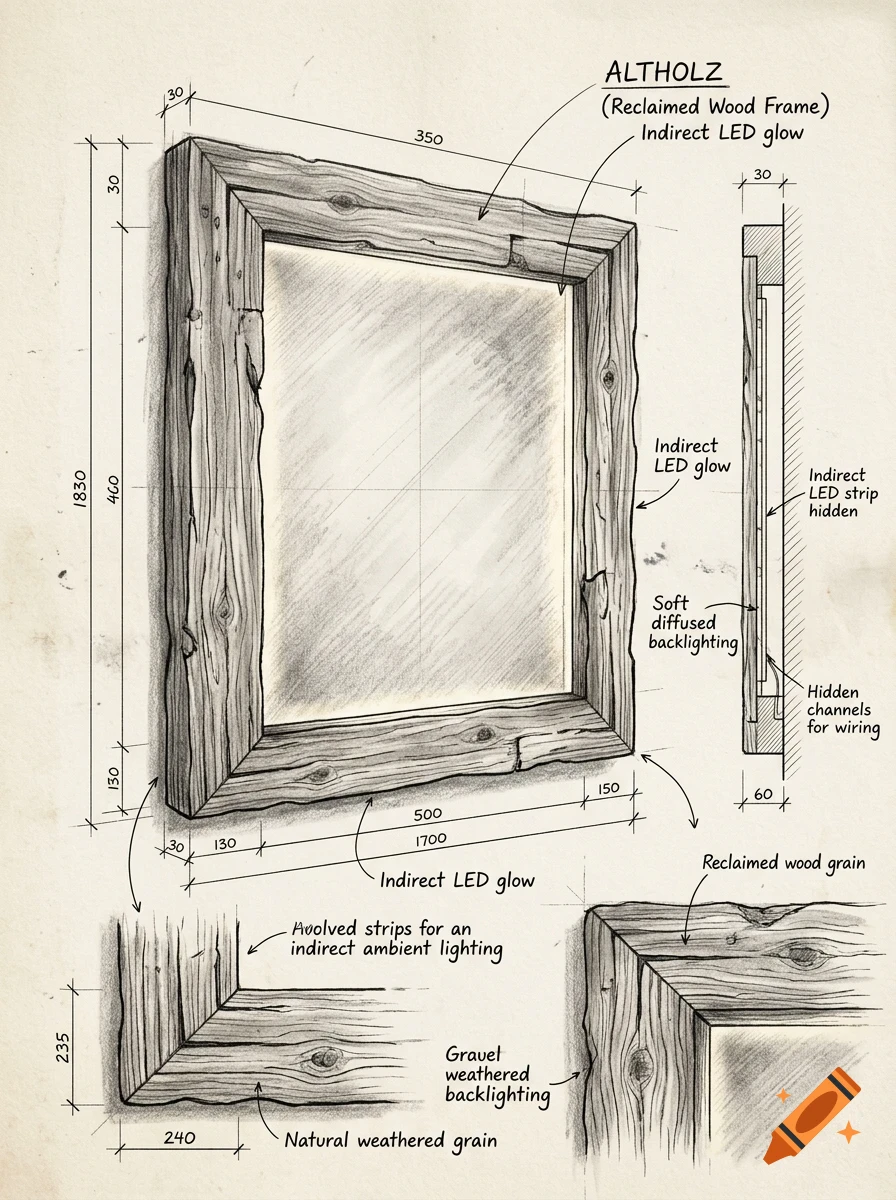 ALTHOLZ
(Reclaimed Wood Frame)
Indirect LED glow
30
350
30
30
1830
460
130
30
130
500
150
1700
Indirect
LED glow
Indirect
LED strip
hidden
Soft
diffused
backlighting
Hidden
channels
for wiring
60
Indirect LED glow
Reclaimed wood grain
strips for an
indirect ambient lighting
235
240
Natural weathered grain
Grauel
weathered
backlighting